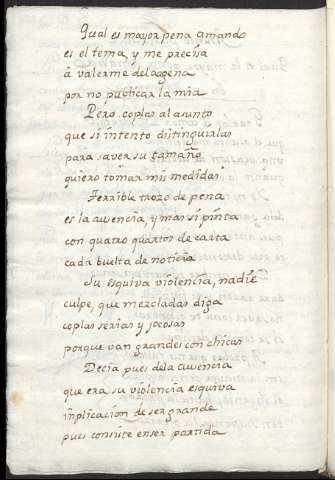 Qual es mayor pena amando
es el tema, y me precisa
à valerme dela agena
por no publicar la mia
Pero coplas al asunto
que si intento distinguirlas
para saver su tamaño
quiero tomar mis medidas
Terrible trozo de pena
es la ausencia, y mas si pinta
con quatro quartos de carta
cada buelta de noticia
Su esquiva violencia, nadie
culpe, que mezcladas diga
coplas serias y jocosas
porque van grandes con chicas
Decia pues dela ausencia
que era su violencia esquiva
inplicacion de ser grande
pues consiste enser partida